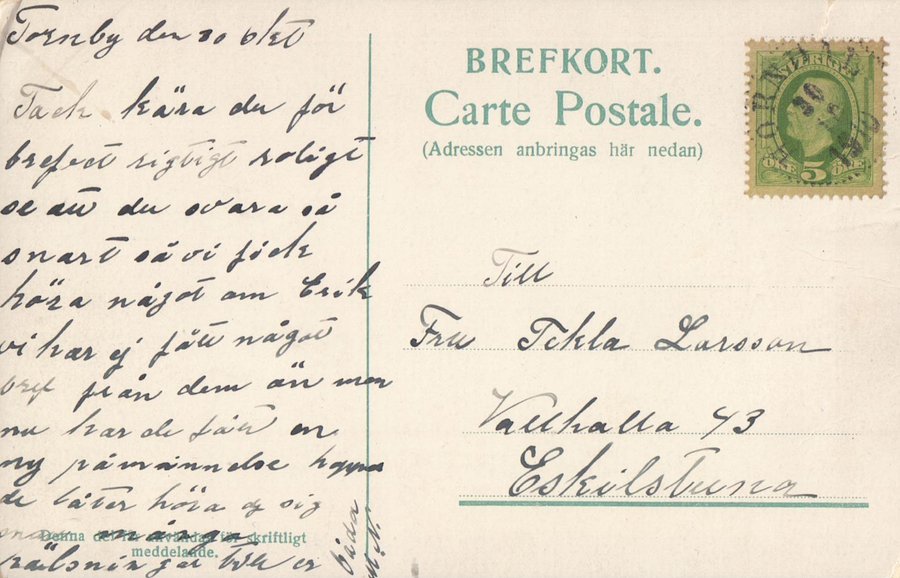 Tornby den 30 okt
Tack kära du för
brefvet rigtigt roligt
se att du svara så
snart så vi fick
höra något om Erik
vi har ej fått något
bref från dem än men
nu har de fått en
ny påminnelse hoppas
de låter höra af sig
snart många
hälsningar till er
båda
BREFKORT.
Carte Postale.
(Adressen anbringas här nedan)
SVERIGE
ÖRE 5 ÖRE
30
Till
Fru Tekla Larsson
Vallhalla 43
Eskilstuna
Denna del får användas för skriftligt
meddelande.